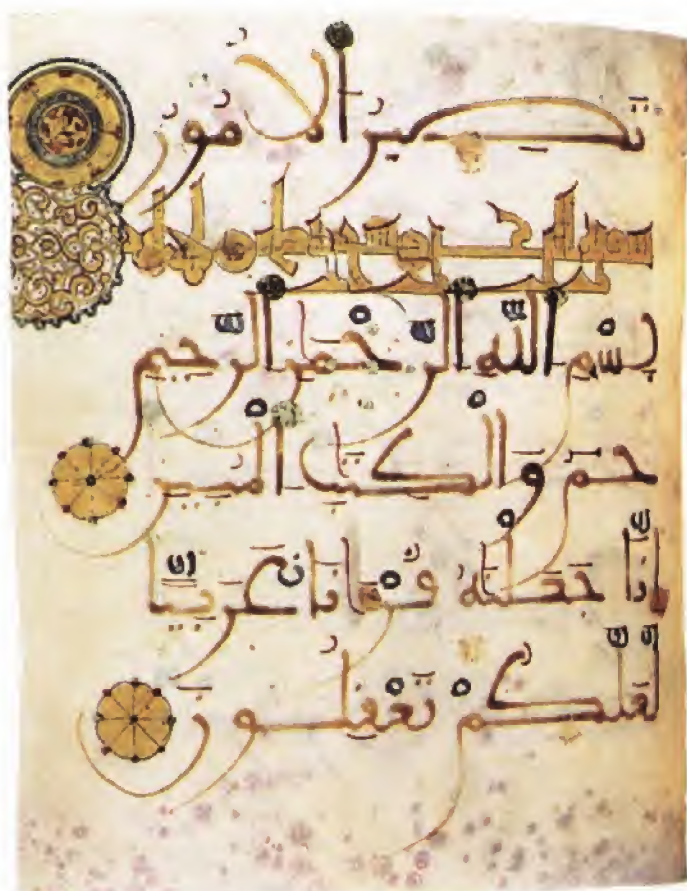 تَصِيرُ الْأُمُورُ
سورة الزخرف
بِسْمِ اللَّهِ الرَّحْمَٰنِ الرَّحِيمِ
حمٓ وَالْكِتَٰبِ الْمُبِينِ
إِنَّا جَعَلْنَٰهُ قُرْءَٰنًا عَرَبِيًّا
لَّعَلَّكُمْ تَعْقِلُونَ